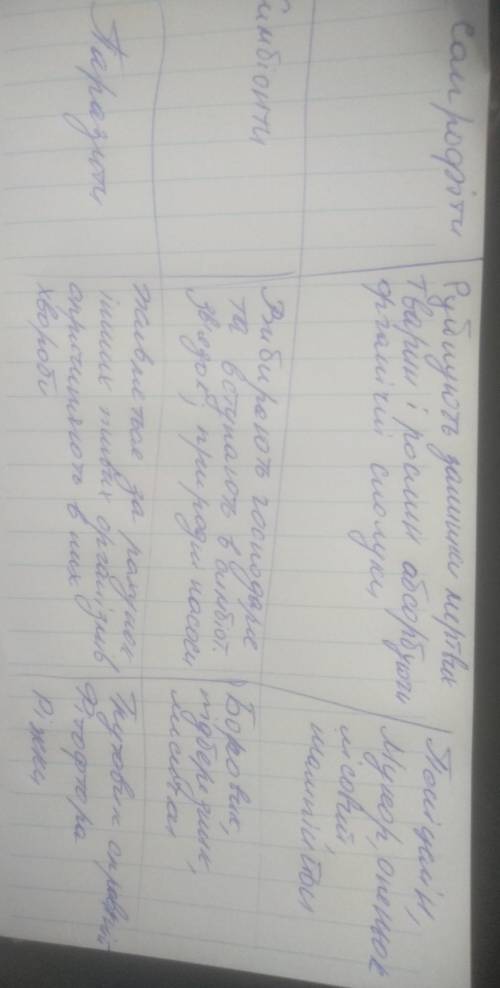 Сапрофіти
Руйнують залишки мертвих
тварин і рослин абсорбують
органічні сполуки
Пеніцилін,
Мукор, опеньок
лісовий,
шампіньйон
Симбіонти
Вибирають господаря
та вступають в симбіоз
природні насоси
Боровик,
підберезник,
лисички
Паразити
Живляться за рахунок
інших живих організмів,
спричиняють в них
хвороби
Трутовик справжній
Фітофтора
ріжки